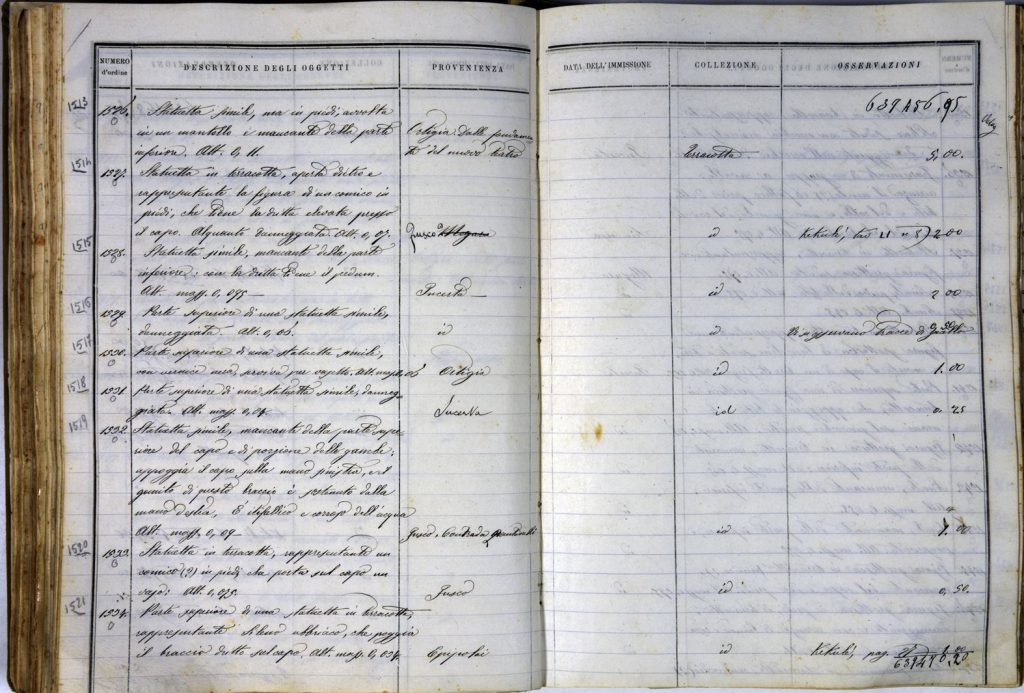 NUMERO d'ordine
DESCRIZIONE DEGLI OGGETTI
PROVENIENZA
DATA DELL'IMMISSIONE
COLLEZIONE
OSSERVAZIONI
639456,95
1513
1526
Statuetta simile, ma in piedi, avvolta
in un mantello e mancante della parte
inferiore. Alt. 0,11.
Ortigia. Dalle fondamen
ta del nuovo Teatro
Terracotta
5,00.
1514
1527.
Statuetta in terracotta, aperta dietro e
rappresentante la figura di un comico in
piedi, che tiene la dritta elevata presso
il capo. Alquanto danneggiata. Alt. 0,07.
Fusco
id
Kekulé, tav
2.00
1515
1528.
Statuetta simile, mancante della parte
inferiore: con la dritta tiene il pedum.
Alt. mass. 0,095
Incerta
id
2.00
1516
1529
Parte superiore di una statuetta simile,
danneggiata. Alt. 0,06.
id
id
Si osservano tracce di
0,50
1517
1530.
Parte superiore di una statuetta simile,
con vernice nera, Alt. mass. 0,06
Ortigia
id
1.00
1518
1531.
Parte superiore di una statuetta simile, danneg
giata. Alt. mass. 0,07
Incerta
id
0.25
1519
1532
Statuetta simile, mancante della parte supe
riore del capo e di porzione delle gambe;
appoggia il capo sulla mano sinistra, e il
gomito di questo braccio è sostenuto dalla
mano destra. E itifallico e corroso dell'acqua
Alt. mass. 0,09
Fusco, Contrada
id
1.00
1520
1533.
Statuetta in terracotta, rappresentante un
comico (?) in piedi che porta sul capo un
vaso. Alt. 0,075.
Fusco
id
0,50.
1521
1534.
Parte superiore di una statuetta in terracotta,
rappresentante Sileno ubbriaco, che poggia
il braccio dritto sul capo. Alt. mass. 0,034.
Epipoli
id
Kekulé, pag.
1.00